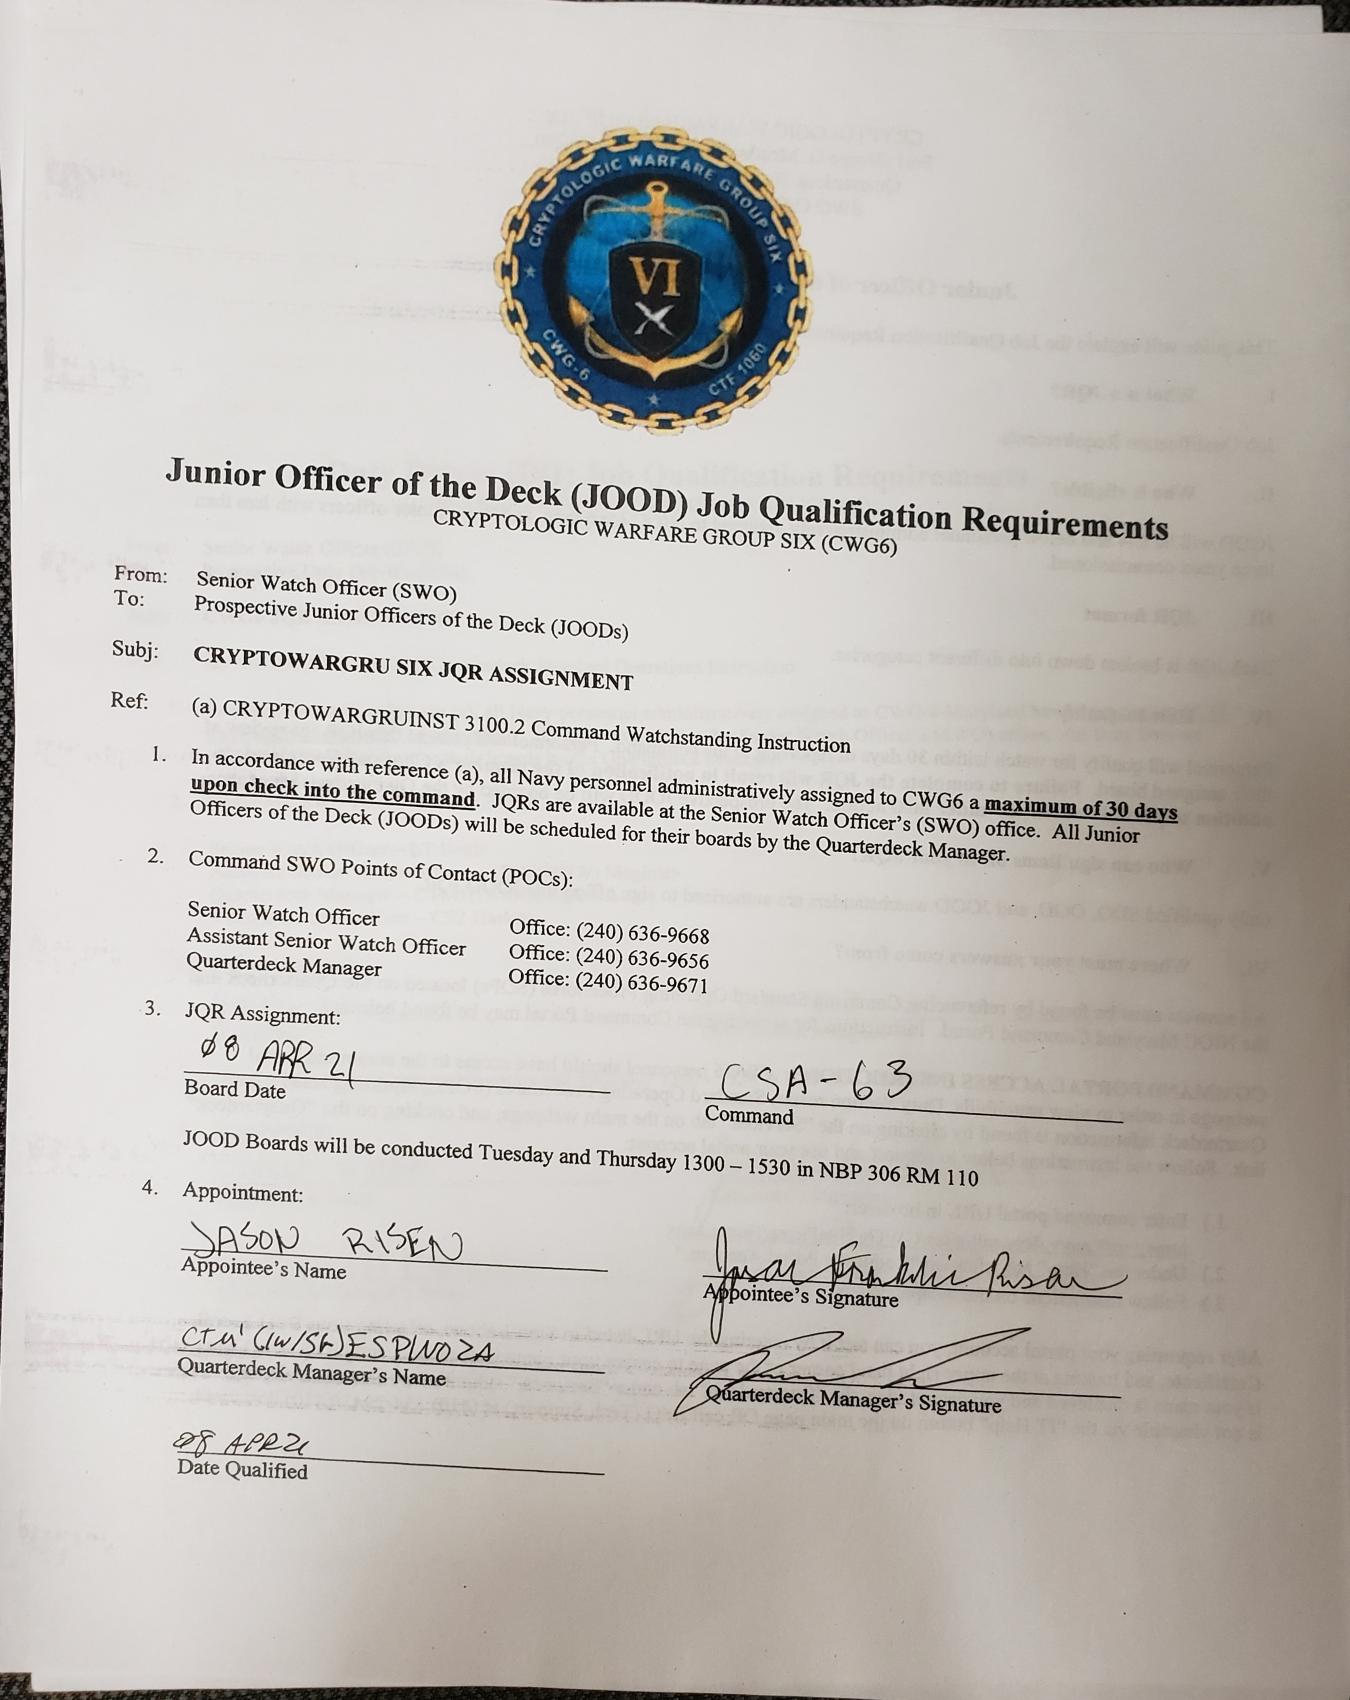 CRYPTOLOGIC WARFARE GROUP SIX
VI
X
CWG-6
CTF 1060
Junior Officer of the Deck (JOOD) Job Qualification Requirements
CRYPTOLOGIC WARFARE GROUP SIX (CWG6)
From: Senior Watch Officer (SWO)
To: Prospective Junior Officers of the Deck (JOODs)
Subj: CRYPTOWARGRU SIX JQR ASSIGNMENT
Ref: (a) CRYPTOWARGRUINST 3100.2 Command Watchstanding Instruction
1. In accordance with reference (a), all Navy personnel administratively assigned to CWG6 a maximum of 30 days
upon check into the command. JQRs are available at the Senior Watch Officer's (SWO) office. All Junior
Officers of the Deck (JOODs) will be scheduled for their boards by the Quarterdeck Manager.
2. Command SWO Points of Contact (POCs):
Senior Watch Officer Office: (240) 636-9668
Assistant Senior Watch Officer Office: (240) 636-9656
Quarterdeck Manager Office: (240) 636-9671
3. JQR Assignment:
Ø8 APR 21 CSA-63
Board Date Command
JOOD Boards will be conducted Tuesday and Thursday 1300 – 1530 in NBP 306 RM 110
4. Appointment:
JASON RISEN
Appointee's Name Appointee's Signature
CTM1 (IW/SG) ESPINOZA
Quarterdeck Manager's Name Quarterdeck Manager's Signature
Ø8 APR 21
Date Qualified